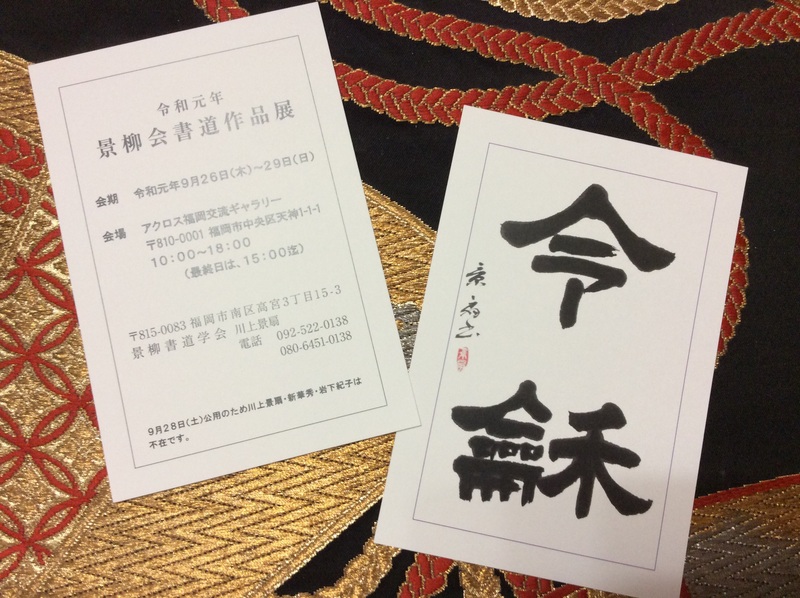 令和元年
景柳会書道作品展
会期 令和元年9月26日(木)～29日(日)
会場 アクロス福岡交流ギャラリー
〒810-0001 福岡市中央区天神1-1-1
10：00～18：00
(最終日は、15：00迄)
〒815-0083 福岡市南区高宮3丁目15-3
景柳書道学会 川上景扇
電話 092-522-0138
080-6451-0138
9月28日(土)公用のため川上景扇・新華秀・岩下紀子は
不在です。
令
龢
景扇書